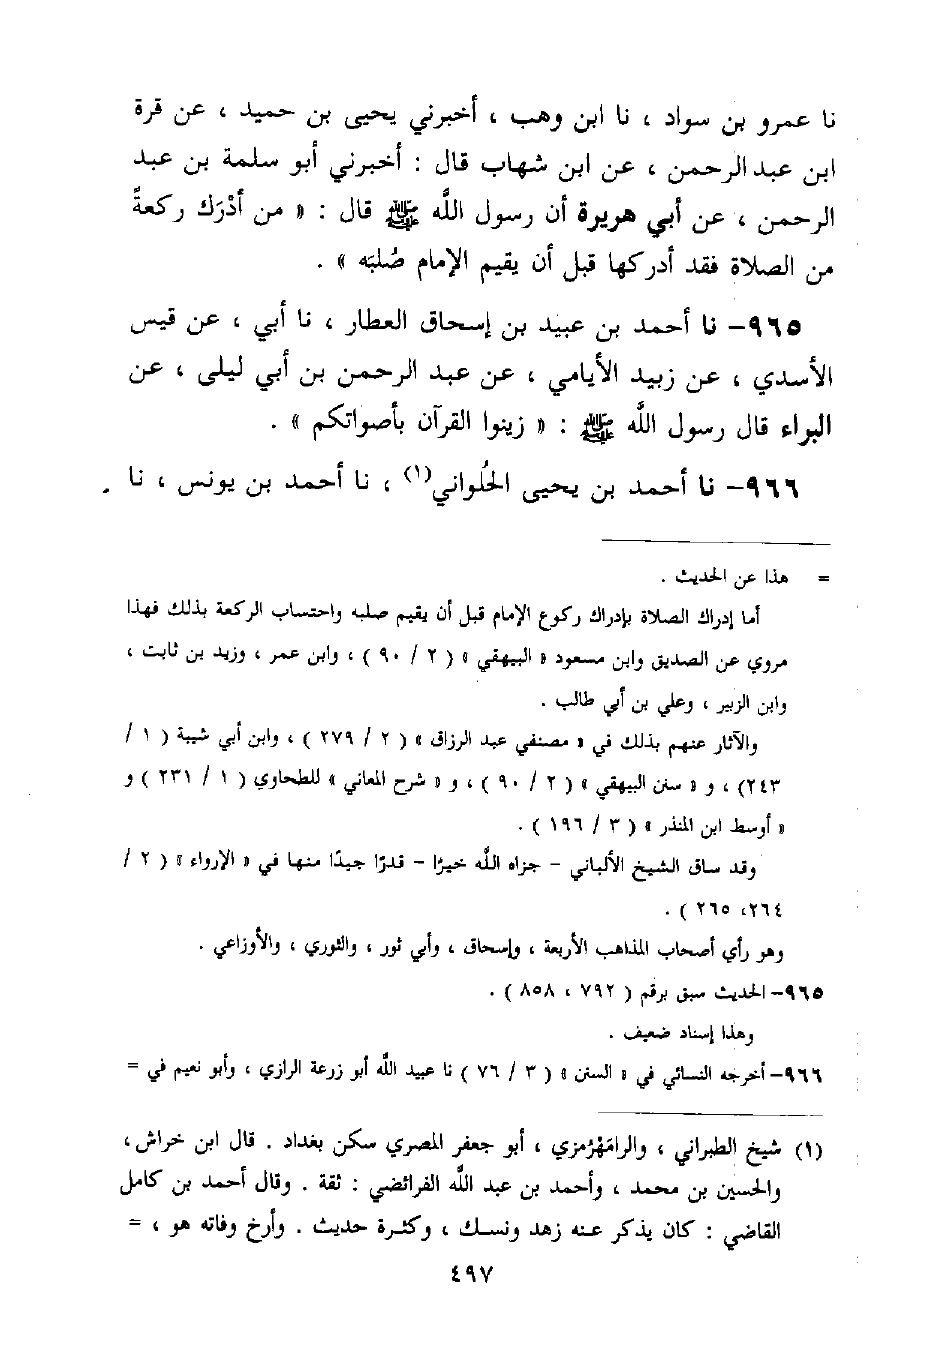 نا عمرو بن سواد ، نا ابن وهب ، أخبرني يحيى بن حميد ، عن قرة
ابن عبد الرحمن ، عن ابن شهاب قال : أخبرني أبو سلمة بن عبد
الرحمن ، عن أبي هريرة أن رسول اللَّه ﷺ قال : « من أدْرَك ركعةً
من الصلاة فقد أدركها قبل أن يقيم الإمام صُلبَه » .
٩٦٥- نا أحمد بن عبيد بن إسحاق العطار ، نا أبي ، عن قيس
الأسدي ، عن زبيد الأيامي ، عن عبد الرحمن بن أبي ليلى ، عن
البراء قال رسول اللَّه ﷺ : « زينوا القرآن بأصواتكم » .
٩٦٦- نا أحمد بن يحيى الحُلواني(١) ، نا أحمد بن يونس ، نا
= هذا عن الحديث .
أما إدراك الصلاة بإدراك ركوع الإمام قبل أن يقيم صلبه واحتساب الركعة بذلك فهذا
مروي عن الصديق وابن مسعود « البيهقي » ( ٢ / ٩٠ ) ، وابن عمر ، وزيد بن ثابت ،
وابن الزبير ، وعلي بن أبي طالب .
والآثار عنهم بذلك في « مصنفي عبد الرزاق » ( ٢ / ٢٧٩ ) ، وابن أبي شيبة ( ١ /
٢٤٣) ، و « سنن البيهقي » ( ٢ / ٩٠ ) ، و « شرح المعاني » للطحاوي ( ١ / ٢٣١ ) و
« أوسط ابن المنذر » ( ٣ / ١٩٦ ) .
وقد ساق الشيخ الألباني - جزاه اللَّه خيرًا - قدرًا جيدًا منها في « الإرواء » ( ٢ /
٢٦٤، ٢٦٥ ) .
وهو رأي أصحاب المذاهب الأربعة ، وإسحاق ، وأبي ثور ، والثوري ، والأوزاعي .
٩٦٥- الحديث سبق برقم ( ٧٩٢ ، ٨٥٨ ) .
وهذا إسناد ضعيف .
٩٦٦- أخرجه النسائي في « السنن » ( ٣ / ٧٦ ) نا عبيد اللَّه أبو زرعة الرازي ، وأبو نعيم في =
(١) شيخ الطبراني ، والرامَهْرُمزي ، أبو جعفر المصري سكن بغداد . قال ابن خراش ،
والحسين بن محمد ، وأحمد بن عبد اللَّه الفرائضي : ثقة . وقال أحمد بن كامل
القاضي : كان يذكر عنه زهد ونسك ، وكثرة حديث . وأرخ وفاته هو ، =
٤٩٧